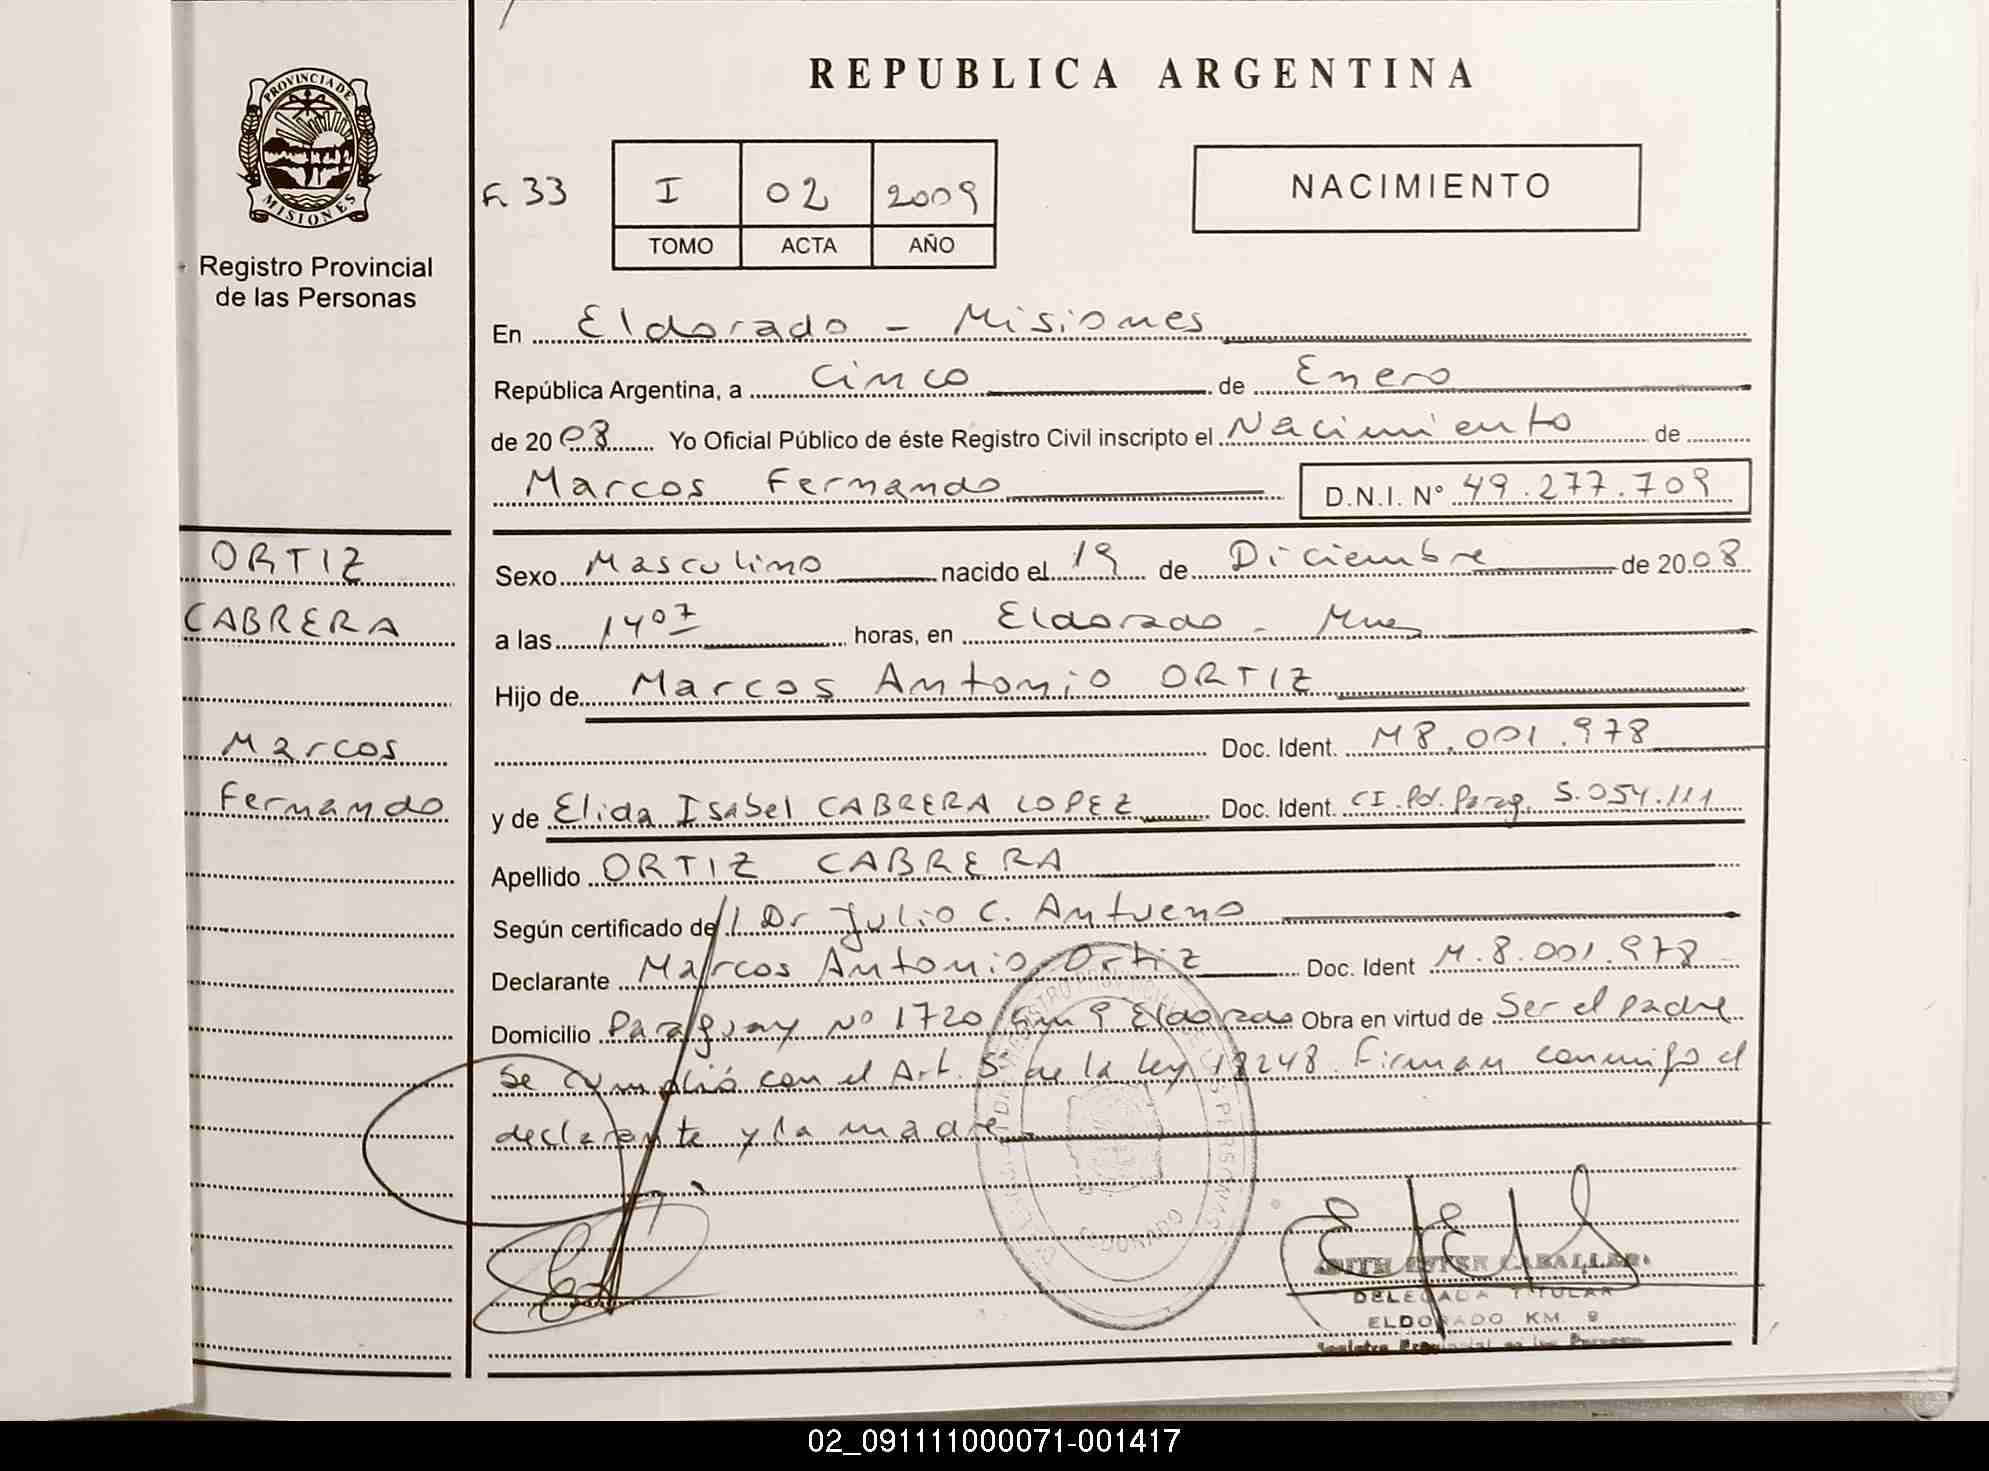 REPUBLICA ARGENTINA
PROVINCIA DE
MISIONES
Registro Provincial
de las Personas
F. 33
I 02 2009
TOMO ACTA AÑO
NACIMIENTO
En Eldorado - Misiones
República Argentina, a Cinco de Enero
de 20 Yo Oficial Público de éste Registro Civil inscripto el Nacimiento de
Marcos Fernando D.N.I. N° 49.277.709
ORTIZ
CABRERA
Marcos
Fernando
Sexo Masculino nacido el 19 de Diciembre de 2008
a las 14 07 horas, en Eldorado - Mnes
Hijo de Marcos Antonio ORTIZ
Doc. Ident. M 8.001.978
y de Elida Isabel CABRERA LOPEZ Doc. Ident. CI. Pol. Parag. 5.054.111
Apellido ORTIZ CABRERA
Según certificado del Dr Julio C. Antueno
Declarante Marcos Antonio Ortiz Doc. Ident M.8.001.978
Domicilio Paraguay Nº 1720 km 9 Eldorado Obra en virtud de Ser el padre
Se cumplió con el Art. 5º de la Ley 18248. Firman conmigo el
declarante y la madre
ELDORADO
CABALLERO
DELEGADA TITULAR
ELDORADO KM. 9
Registro Provincial de las Personas
02_091111000071-001417